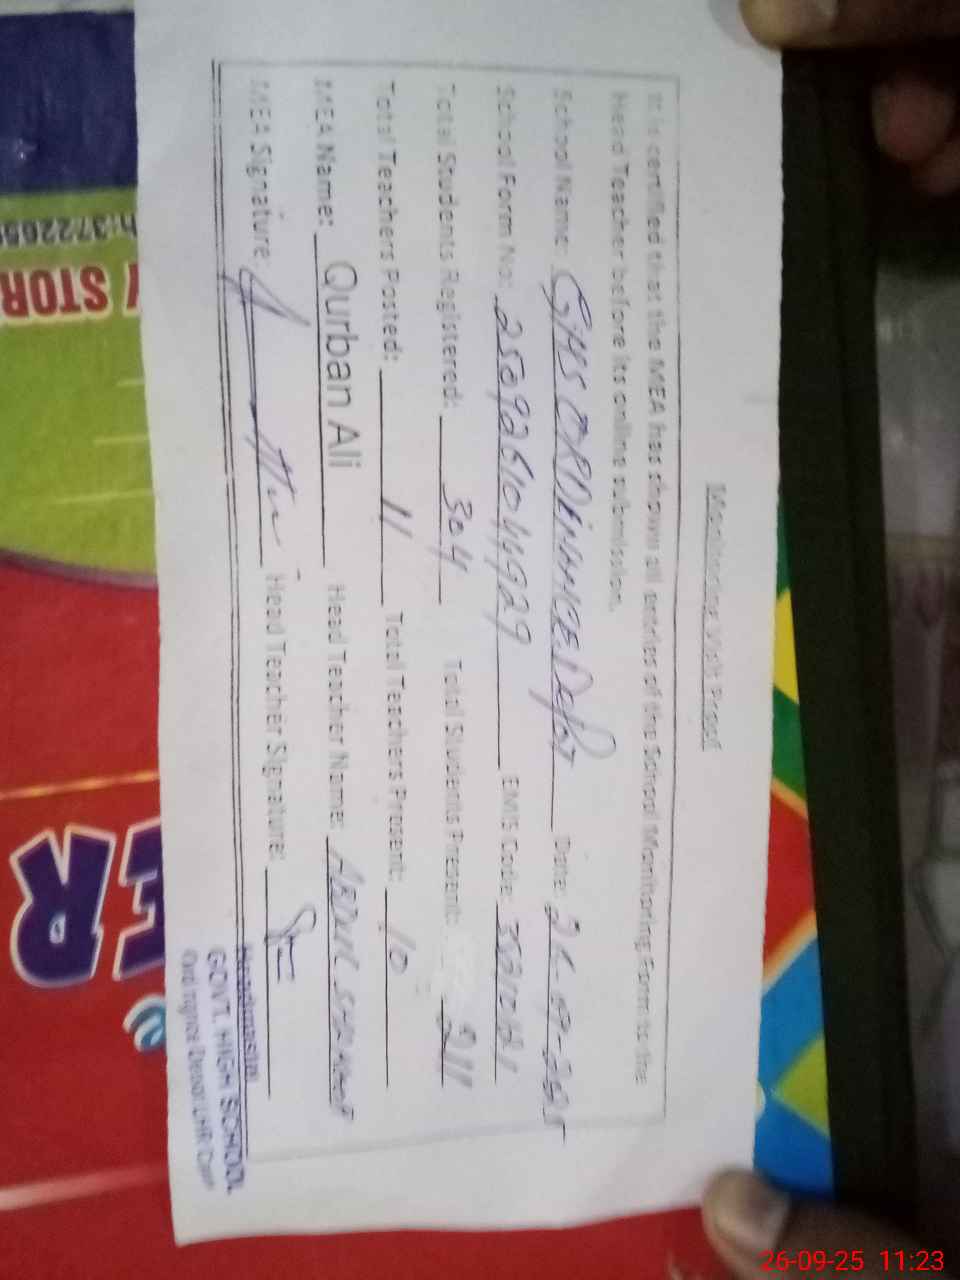 Monitoring Visit Proof
It is certified that the MEA has shown all entries of the School Monitoring Form to the
Head Teacher before its online submission.
School Name: GHS ORDINANCE Depot Date: 26-09-2025
School Form No: EMIS Code:
Total Students Registered: 304 Total Students Present: 211
Total Teachers Posted: 11 Total Teachers Present: 10
MEA Name: Qurban Ali Head Teacher Name: ABDUL
MEA Signature: Head Teacher Signature:
Headmaster
GOVT. HIGH SCHOOL
Ordnance Depot LHR Cantt
h:372265
STOR
ER
26-09-25 11:23